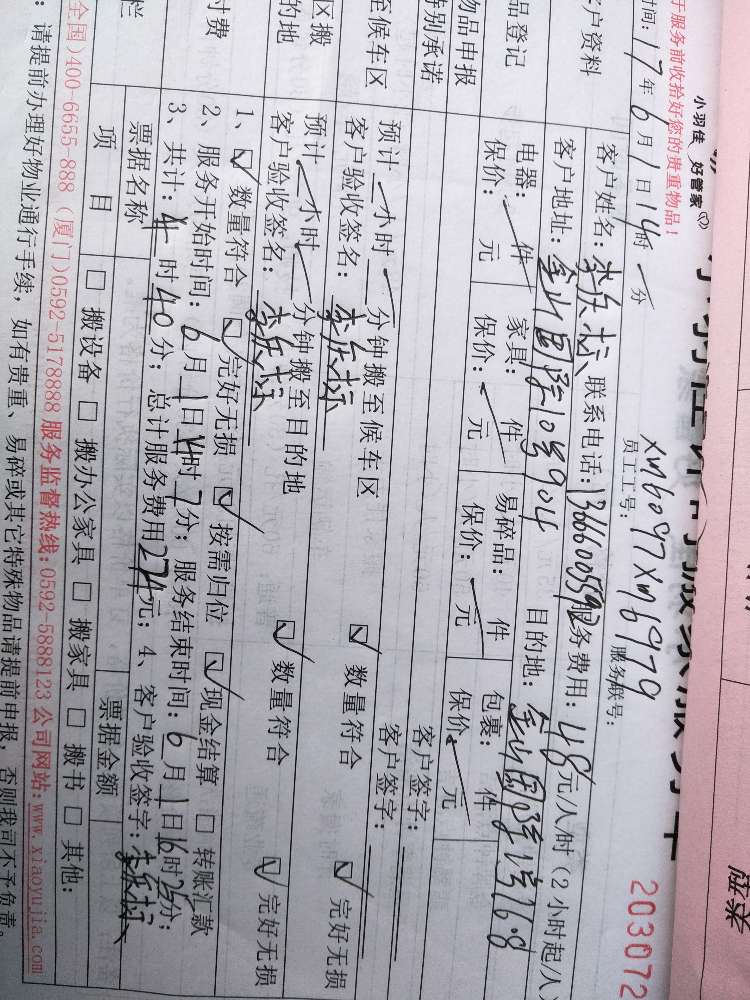 小羽佳 好管家
于服务前收拾好您的贵重物品！
203072
员工工号：xm6097 xm6979 服务联号：
时间：17年6月1日14时 分
客户资料
客户姓名： 联系电话：13666005592 服务费用：48元/人/时（2小时起/人
客户地址：金山国际10号904 目的地：
品登记
电器： 件 家具： 件 易碎品： 件 包裹： 件
保价： 元 保价： 元 保价： 元 保价： 元
物品申报
客户签字：
特别承诺
客户签字：
至候车区
预计 小时 分钟搬至候车区 ☑ 数量符合 ☑ 完好无损
客户验收签名：
区搬
的地
预计 小时 分钟搬至目的地 ☑ 数量符合 ☑ 完好无损
客户验收签名：
付费
1、☑ 数量符合 ☑ 完好无损 ☑ 按需归位 ☑ 现金结算 □ 转账汇款
2、服务开始时间：6月1日14时7分；服务结束时间：6月1日16时25分；
3、共计：4时40分；总计服务费用274元；4、客户验收签字：
栏
票据名称 票据金额
项目 □ 搬设备 □ 搬办公家具 □ 搬家具 □ 搬书 □ 其他：
全国)400-6655-888 (厦门)0592-5178888 服务监督热线：0592-5888123 公司网站：www.xiaoyujia.com
：请提前办理好物业通行手续，如有贵重、易碎或其它特殊物品请提前申报，否则我司不予负责。